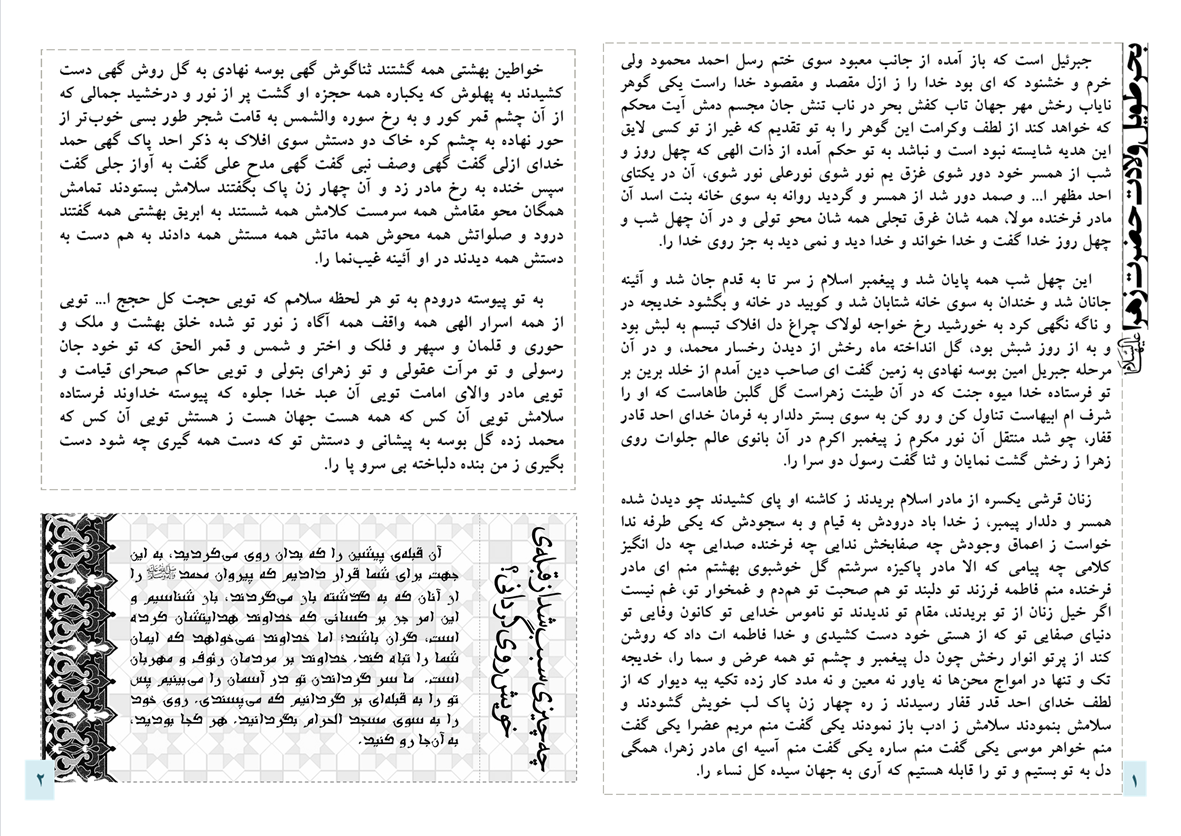 بحر طویل ولادت حضرت زهرا علیهاالسلام
جبرئیل است که باز آمده از جانب معبود سوی ختم رسل احمد محمود ولی
خرم و خشنود که ای بود خدا را ز ازل مقصد و مقصود خدا راست یکی گوهر
نایاب رخش مهر جهان تاب کفش بحر در ناب تنش جان مجسم دمش آیت محکم
که خواهد کند از لطف وکرامت این گوهر را به تو تقدیم که غیر از تو کسی لایق
این هدیه شایسته نبود است و نباشد به تو حکم آمده از ذات الهی که چهل روز و
شب از همسر خود دور شوی غزق یم نور شوی نورعلی نور شوی، آن در یکتای
احد مظهر ا... و صمد دور شد از همسر و گردید روانه به سوی خانه بنت اسد آن
مادر فرخنده مولا، همه شان غرق تجلی همه شان محو تولی و در آن چهل شب و
چهل روز خدا گفت و خدا خواند و خدا دید و نمی دید به جز روی خدا را.
این چهل شب همه پایان شد و پیغمبر اسلام ز سر تا به قدم جان شد و آئینه
جانان شد و خندان به سوی خانه شتابان شد و کوبید در خانه و بگشود خدیجه در
و ناگه نگهی کرد به خورشید رخ خواجه لولاک چراغ دل افلاک تبسم به لبش بود
و به از روز شبش بود، گل انداخته ماه رخش از دیدن رخسار محمد، و در آن
مرحله جبریل امین بوسه نهادی به زمین گفت ای صاحب دین آمدم از خلد برین بر
تو فرستاده خدا میوه جنت که در آن طینت زهراست گل گلبن طاهاست که او را
شرف ام ابیهاست تناول کن و رو کن به سوی بستر دلدار به فرمان خدای احد قادر
قفار، چو شد منتقل آن نور مکرم ز پیغمبر اکرم در آن بانوی عالم جلوات روی
زهرا ز رخش گشت نمایان و ثنا گفت رسول دو سرا را.
زنان قرشی یکسره از مادر اسلام بریدند ز کاشنه او پای کشیدند چو دیدن شده
همسر و دلدار پیمبر، ز خدا باد درودش به قیام و به سجودش که یکی طرفه ندا
خواست ز اعماق وجودش چه صفابخش ندایی چه فرخنده صدایی چه دل انگیز
کلامی چه پیامی که الا مادر پاکیزه سرشتم گل خوشبوی بهشتم منم ای مادر
فرخنده منم فاطمه فرزند تو دلبند تو هم صحبت تو هم‌دم و غمخوار تو، غم نیست
اگر خیل زنان از تو بریدند، مقام تو ندیدند تو ناموس خدایی تو کانون وفایی تو
دنیای صفایی تو که از هستی خود دست کشیدی و خدا فاطمه ات داد که روشن
کند از پرتو انوار رخش چون دل پیغمبر و چشم تو همه عرض و سما را، خدیجه
تک و تنها در امواج محن‌ها نه یاور نه معین و نه مدد کار زده تکیه ببه دیوار که از
لطف خدای احد قدر قفار رسیدند ز ره چهار زن پاک لب خویش گشودند و
سلامش بنمودند سلامش ز ادب باز نمودند یکی گفت منم مریم عضرا یکی گفت
منم خواهر موسی یکی گفت منم ساره یکی گفت منم آسیه ای مادر زهرا، همگی
دل به تو بستیم و تو را قابله هستیم که آری به جهان سیده کل نساء را.
۱
خواطین بهشتی همه گشتند ثناگوش گهی بوسه نهادی به گل روش گهی دست
کشیدند به پهلوش که یکباره همه حجزه او گشت پر از نور و درخشید جمالی که
از آن چشم قمر کور و به رخ سوره والشمس به قامت شجر طور بسی خوب‌تر از
حور نهاده به چشم کره خاک دو دستش سوی افلاک به ذکر احد پاک گهی حمد
خدای ازلی گفت گهی وصف نبی گفت گهی مدح علی گفت به آواز جلی گفت
سپس خنده به رخ مادر زد و آن چهار زن پاک بگفتند سلامش بستودند تمامش
همگان محو مقامش همه سرمست کلامش همه شستند به ابریق بهشتی همه گفتند
درود و صلواتش همه محوش همه ماتش همه مستش همه دادند به هم دست به
دستش همه دیدند در او آئینه غیب‌نما را.
به تو پیوسته درودم به تو هر لحظه سلامم که تویی حجت کل حجج ا... تویی
از همه اسرار الهی همه واقف همه آگاه ز نور تو شده خلق بهشت و ملک و
حوری و قلمان و سپهر و فلک و اختر و شمس و قمر الحق که تو خود جان
رسولی و تو مرآت عقولی و تو زهرای بتولی و تویی حاکم صحرای قیامت و
تویی مادر والای امامت تویی آن عبد خدا جلوه که پیوسته خداوند فرستاده
سلامش تویی آن کس که همه هست جهان هست ز هستش تویی آن کس که
محمد زده گل بوسه به پیشانی و دستش تو که دست همه گیری چه شود دست
بگیری ز من بنده دلباخته بی سرو پا را.
چه چیزی سبب شد از قبله‌ی
خویش روی گردانی؟
آن قبله‌ی پیشین را که بدان روی می‌کردید، به این
جهت برای شما قرار دادیم که پیروان محمدﷺ را
از آنان که به گذشته باز می‌گردند، باز شناسیم و
این امر جز بر کسانی که خداوند هدایتشان کرده
است، گران باشد؛ اما خداوند نمی‌خواهد که ایمان
شما را تباه کند. خداوند بر مردمان رئوف و مهربان
است. ما سر گرداندن تو در آسمان را می‌بینیم پس
تو را به قبله‌ای بر گردانیم که می‌پسندی. روی خود
را به سوی مسجد الحرام بگردانید. هر کجا بودید،
به آن‌جا رو کنید.
۲